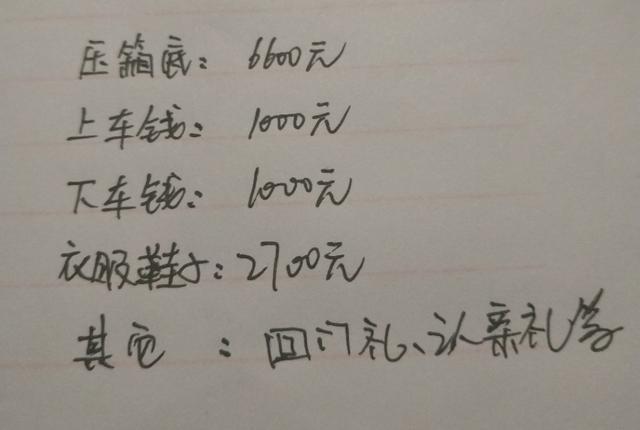 压箱底：6600元
上车钱：1000元
下车钱：1000元
衣服鞋子：2700元
其它：回门礼、认亲礼等